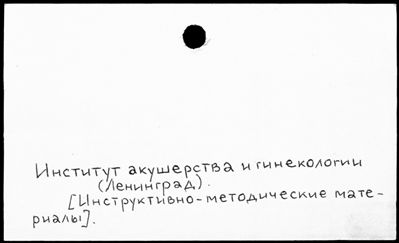 Институт акушерства и гинекологии
(Ленинград).
[Инструктивно-методические мате-
риалы].